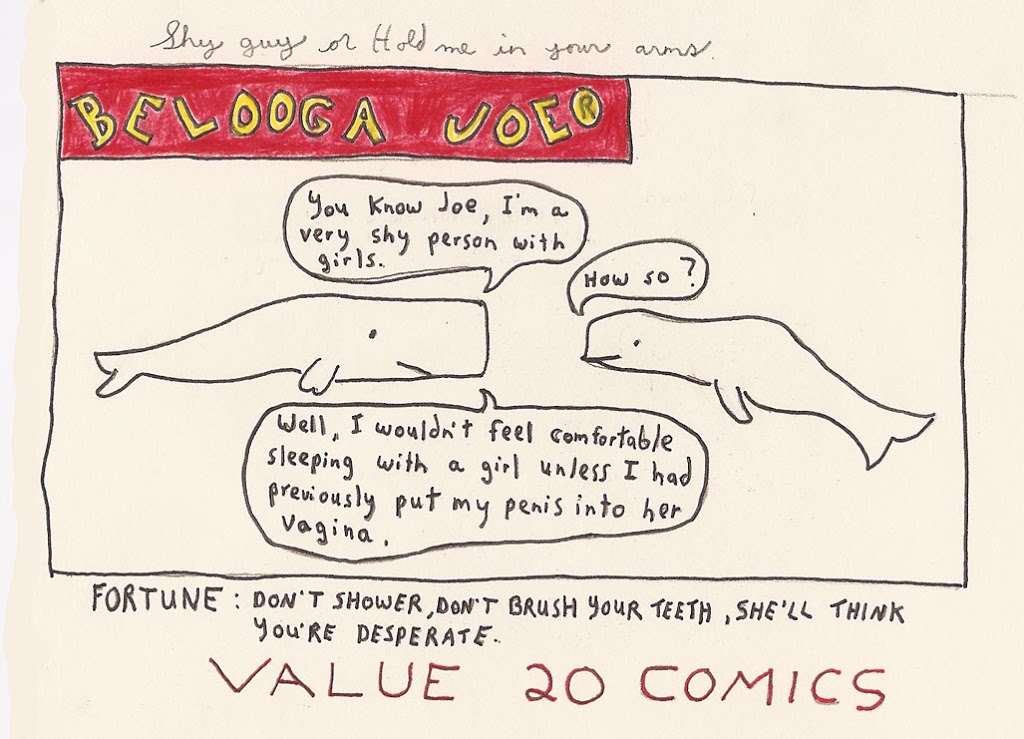 Shy guy or Hold me in your arms.
BELOOGA JOE®
You know Joe, I'm a
very shy person with
girls.
How so?
Well, I wouldn't feel comfortable
sleeping with a girl unless I had
previously put my penis into her
vagina.
FORTUNE: DON'T SHOWER, DON'T BRUSH YOUR TEETH, SHE'LL THINK
YOU'RE DESPERATE.
VALUE 20 COMICS